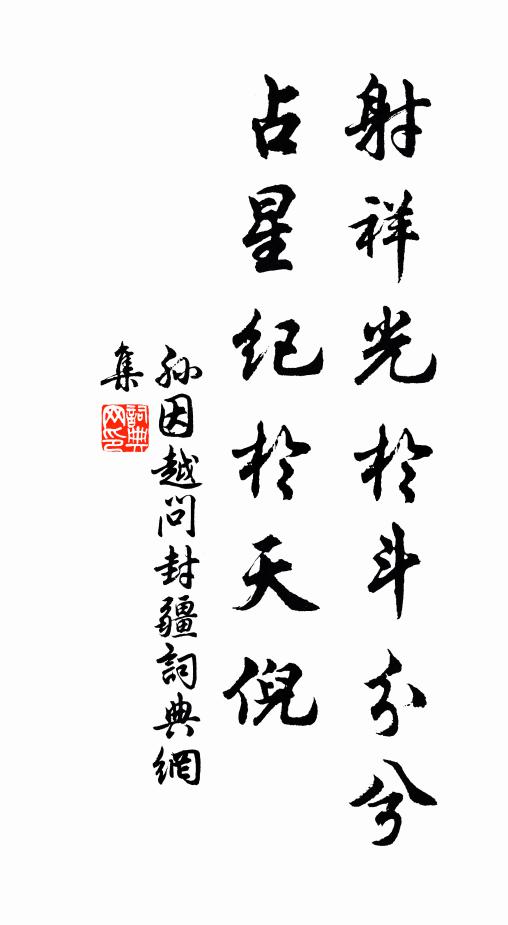 射祥光於斗分兮
占星纪於天倪
孙因越问封疆詞典網
集
詞典
网印